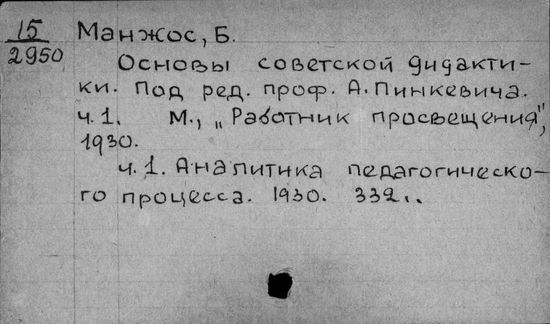 15
2950
Манжос, Б.
Основы советской дидакти-
ки. Под ред. проф. А. Пинкевича.
ч. 1. М., „Работник просвещения",
1930.
ч. 1. Аналитика педагогическо-
го процесса. 1930. 332..